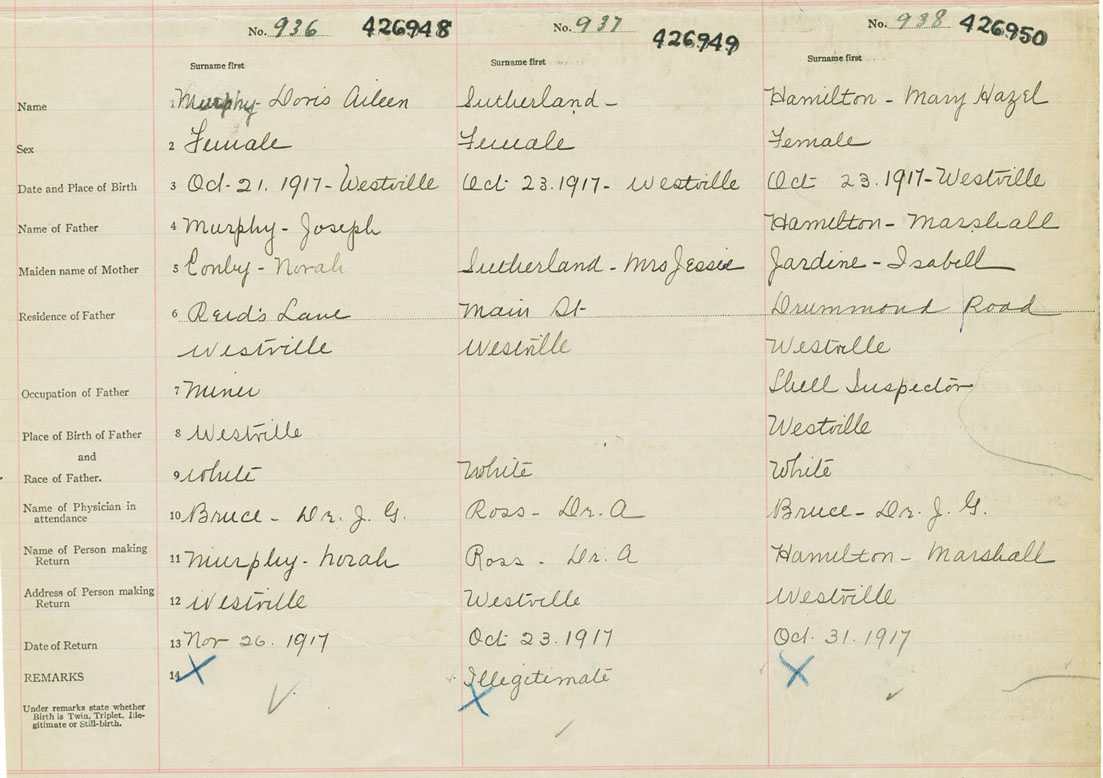 No. 936 426948 No. 937 426949 No. 938 426950
Surname first Surname first Surname first
Name 1 Murphy- Doris Aileen Sutherland- Hamilton - Mary Hazel
Sex 2 Female Female Female
Date and Place of Birth 3 Oct. 21. 1917- Westville Oct 23.1917- Westville Oct 23.1917-Westville
Name of Father 4 Murphy- Joseph Hamilton- Marshall
Maiden name of Mother 5 Norah Sutherland- Mrs Jessie Jardine - Isabell
Residence of Father 6 Reid's Lane Main St- Drummond Road
Westville Westville Westville
Occupation of Father 7 Miner Shell Inspector
Place of Birth of Father 8 Westville Westville
and
Race of Father. 9 White White White
Name of Physician in attendance 10 Bruce- Dr. J. G. Ross- Dr. A Bruce- Dr. J. G.
Name of Person making Return 11 Murphy- Norah Ross - Dr. A Hamilton- Marshall
Address of Person making Return 12 Westville Westville Westville
Date of Return 13 Nov 26. 1917 Oct 23.1917 Oct. 31. 1917
REMARKS 14 X Illegitimate X
X
Under remarks state whether
Birth is Twin, Triplet, Ille-
gitimate or Still-birth.